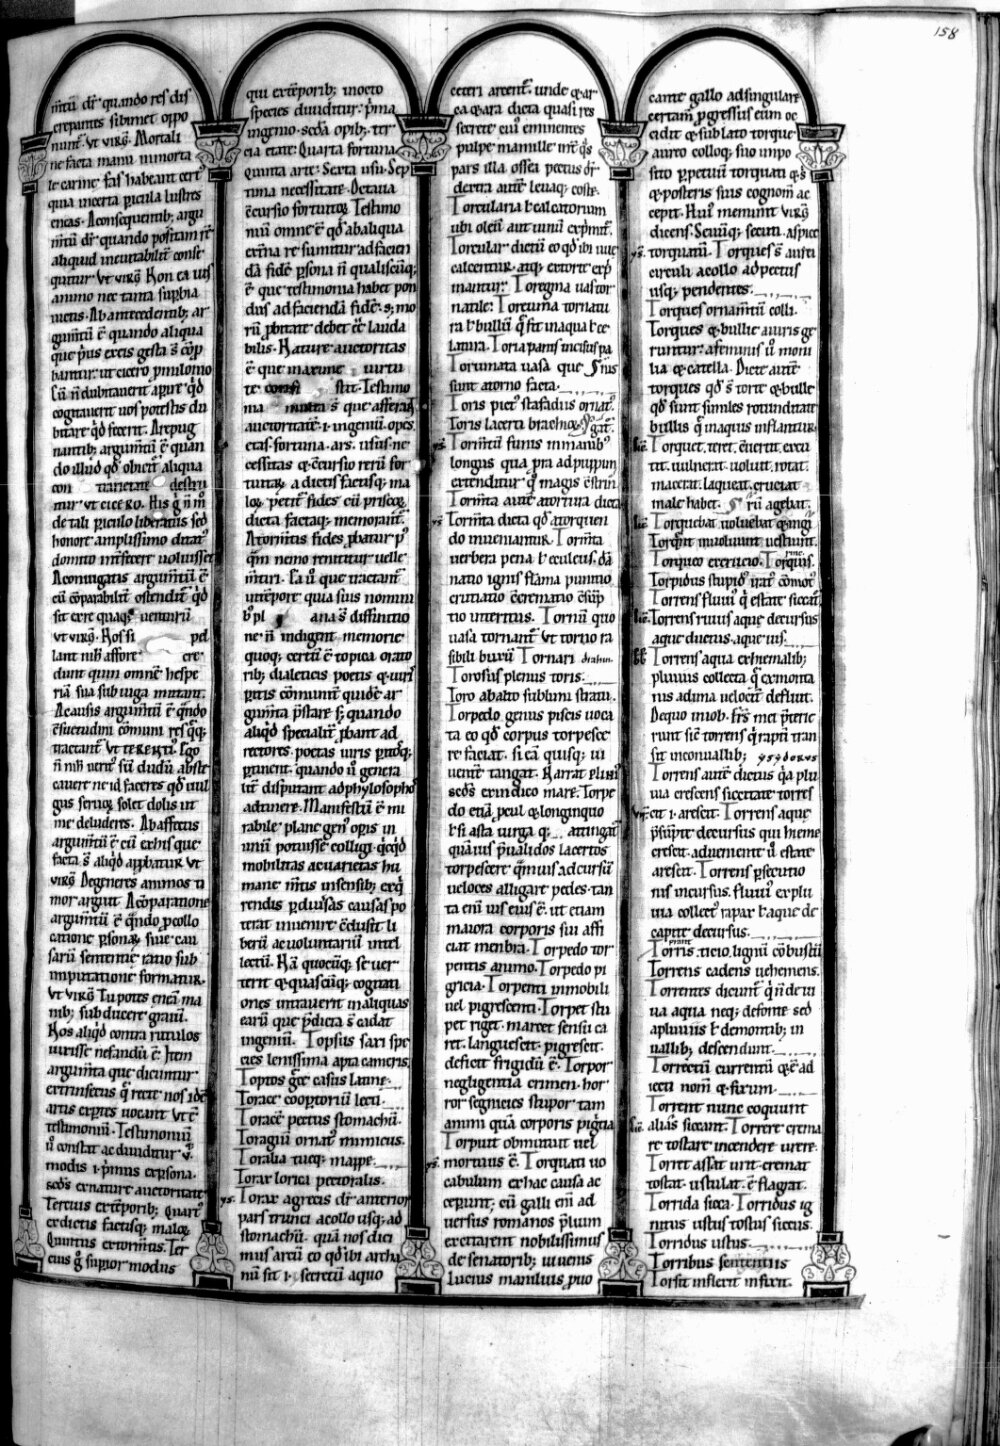 158
m̄tū dr̄ quando res dis
crepantes sibimet oppo
nunt̄. vt virḡ. Mortali
ne facta manu inmorta
le carine fas habeant cert᷒
quia incerta picula lustret
eneas. Aconsequentib; argu
m̄tū dr̄ quando positam rē
aliquid ineuitabilit̄ conse
quitur vt virḡ Non ea uis
animo nec tanta supbia
uictis. Abantecedentib; ar
gum̄tū ē quando aliqua
que p̄us exeis gesta s̄ cōp̄
bantur. ut cicero p̄milonio
Cū n̄ dubitauerit apire q̄d
cogitauerit uos potestis du
bitare q̄d fecerit. Arepug
nantib; argum̄tū ē quan
do illud qd̄ obicit̄ aliqua
con trarietate destru
itur vt cicero. His ḡ n̄ m̄
de tali piculo liberatus sed
honore amplissimo ditat᷒
domito int̄ficere uoluisset
Aconiugatis argum̄tū ē
cū cōparabilit̄ ostendit̄ q̄d
sit exre quaq; uenturū
vt virḡ. Nos si pel
lant nih̄ affore cre
dunt quin omnē hespe
riā sua sub iuga mittant.
Acausis argum̄tū ē q̄ndo
c̄suetudini cōmuni res q̄q;
tractant̄ vt terenti᷒. Ego
n̄ nih̄ uerit᷒ sū dudū abste
cauere ne id faceres qd̄ uul
gus seruoꝝ solet dolis ut
me deluderes. Abaffectis
argum̄tū ē cū exhis que
facta s̄ aliqd̄ appbatur vt
virḡ Degeneres animos ti
mor arguit. Acōparatione
argum̄tū ē q̄ndo p̄collo
catione p̄sonaꝝ siue cau
sarū sententie ratio sub
imputatione formatur.
vt virḡ Tu potes eneā ma
nib; subducere graiū.
Nos aliqd̄ contra rutulos
iuuisse nefandū ē. Item
argum̄ta que dicuntur
extrinsecus q̄ recit nos idē
artis exp̄tes uocant vt ē
testimoniū. Testimoniū
ū constat ac diuiditur v̄.
modis .i. p̄mus exp̄sona.
scd̄s exnature auctoritate
Tercius extēporib; Quart᷒
exdictis factisq; maioꝝ
Quintus extorm̄tis. Ter
cius ḡ supior modus
qui extēporib; uocto
species diuiditur. p̄ma
ingenio. scd̄a opib; ter
cia etate. Quarta fortuna
quinta arte. Sexta usu. Sep
tima necessitate. Octaua
c̄cursio fortuitoꝝ Testimo
niū omne ē qd̄ abaliqua
ext̄na re sumitur adfacien
dā fidē p̄sona n̄ qualiscūq;
ē que testimonia habet pon
dus adfaciendā fidē. s; mo
rū pbitate debet cē lauda
bilis. Nature auctoritas
ē que maxime uirtu
te consi stit. Testimo
nia multa s̄ que afferaꝝ
auctoritatē .i. ingeniū. opes
etas. fortuna. ars. usus. ne
cessitas & c̄cursio rerū for
tuitaꝝ a dictis factisq; ma
ioꝝ petit̄ fides cū priscoꝝ
dicta factaq; memorant̄.
Atorm̄tis fides pbatur p᷒
q̄m nemo renititur uelle
m̄tiri. Ea ū que tractant̄
intēpore quia suis nomini
b᷒ pl ana s̄ diffinitio
ne n̄ indigent memorie
quoq; certū ē topica orato
rib; dialeticis poetis & iuri
pitis cōmunit̄ quidē ar
gum̄ta p̄stare s; quando
aliqd̄ specialit̄ pbant ad
rectores. poetas iuris pitosq;
ptinent. quando ū genera
lit̄ disputant adphylosophos
adtinere. Manifestū ē mi
rabile plane gen᷒ opis in
unū potuisse colligi q̄cq̄d
mobilitas ac uarietas hu
mane m̄tis insensib; exq̄
rendis p diuisas causas po
terat inuenire c̄clusit li
berū ac uoluntariū intel
lectū. Nā quocūq; se uer
terit & quascūq; cogitati
ones intrauerit in aliquas
earū que p̄dicta s̄ cadat
ingeniū. Topsius sari spe
cies lenissima apta cameris
Toptos gr̄c̄ casius Lūine.
Torace coopertoriū lecti.
Toracē pectus stomachū.
Toragiū ornat᷒ minicus.
Toralia tucq; mappe.
Torax lorica pectoralis.
ys. Torax agrecis dr̄ anterior
pars trunci acollo usq; ad
stomachū. quā nos dici
mus arcū eo qd̄ ibi archa
nū sit .i. secretū aquo
ceteri arcent̄. unde & ar
ca & ara dicta quasi res
secrete. eui᷒ eminentes
pulpe mamille int̄ q̄s
pars illa ossea pectus dr̄
dextra autē leuaq; coste.
Torcularia ł calcatorium
ubi oleū aut uinū exp̄mit̄.
Torcular dictū eo qd̄ ibi uue
calcentur. atq; extorte exp̄
mantur. Toregma uas tor
natile. Toreuma tornatu
ra ł bullū q̄ fit inaqua ł ce
latura. Toria panis incisus pa
Torumata uasa que
sunt atorno facta.
Toris piet᷒ stafadius ornat᷒.
Toris lacerta brachioꝝ.
Torm̄tū funis inmanib᷒
longus qua pra adpuppim
extenditur q̄ magis c̄strin
Torm̄ta autē atortura dicta
ys Torm̄ta dicta qd̄ atorquen
do inueniantur. Torm̄ta
uerbera pena ł eculeus. dā
natio ignis flāma punitio
cruciatio c̄crematio c̄sūp
tio interitus. Tornū quo
uasa tornant̄ vt torno ra
sibili buxū Tornari
Torosus plenus toris.
Toro abalto sublimi stratu.
Torpedo genus piscis uoca
ta eo qd̄ corpus torpesce
re faciat. si eā quisq; ui
uentē tangat. Narrat plini᷒
scd̄s exindico mare. Torpe
do etiā pcul & longinquo
ł si asta uirga q; attingat̄
quāuis p̄ualidos lacertos
torpescere q̄muis adcursū
ueloces alligare pedes. tan
ta enī uis eius ē. ut etiam
maiora corporis sui affi
ciat menbra. Torpedo tor
pentis animo. Torpedo pi
gricia. Torpenti inmobili
uel pigrescenti. Torpet stu
pet riget. marcet sensu ca
ret. Languescit. pigrescit.
deficit frigidū ē. Torpor
negligentia crimen. hor
ror segnicies stupor tam
animi quā corporis pigritia
Torpuit obmutuit uel
ys. mortuus ē. Torquati uo
cabulum exhac causa ac
ceperunt. cū galli enī ad
uersus romanos p̄lium
excitarent nobilissimus
de senatorib; iuuenis
Lucius manilius puo
cante gallo adsingulare
certam̄ pgressus eum oc
cidit & sublato torque
aureo colloq; suo inpo
sito ppetuū torquati &s̄
& posteris suis cognom̄ ac
cepit. Hui᷒ meminit virḡ
dicens. Seuūq; secuti. aspice
ys. torquatū. Torques s̄ aurei
circuli acollo adpectus
usq; pendentes.
Torques ornam̄tū colli.
Torques & bulle auiris ge
runtur. afeminis ū moni
lia & catella. Dicte autē
torques qd̄ s̄ torte & bulle
qd̄ sunt similes rotunditate
bullis q̄ inaquis inflantur.
Torquet. teret. euertit. excu
tit. uulnerat. uoluit. rotat.
macerat. laqueat. cruciat
male habet. rū agebat.
Torquebat uoluebat
Torqūit inuoluunt uestiunt.
Torqueo excrucio. Torquis.
Torpidus stupid᷒ irat᷒ cōmot᷒
Torrens fluui᷒ q̄ estate siccat̄.
Torrens riuus aque decursus
aque ductus. aque uis.
Torrens aqua exhiemalib;
pluuiis collecta q̄ exmonta
nis adima uelocit̄ defluit.
Dequo inіob. Frs̄ mei p̄terie
runt sic̄ torrens q̄ raptī tran
sit inconuallib; ysydorus
Torrens autē dictus q̄a plu
uia crescens siccitate torres
cit .i. arescit. Torrens aque
p̄sūptē decursus qui hieme
crescit. adueniente ū estate
arescit. Torrens psecutio
nis incursus. fluui᷒ explu
uia collect᷒ rapax ł aque de
capite decursus.
Torris ticio. lignū cōbustū
Torrens cadens uehemens.
Torrentes dicunt̄ q̄ n̄ de ui
ua aqua neq; defonte. sed
apluuiis ł demontib; in
uallib; descendunt.
Torrectū currentū q̄ cē ad
iecti nom̄ & firum.
Torrent nunc coquunt
alias siccant. Torrere crema
re tostare incendere urere.
Torret assat urit. cremat
tostat. ustulat. c̄flagrat.
Torrida sicca. Torridus ig
nitus ustus tostus siccus.
Torridus ustus.
Torribus sentenntiis
Torsit inflexit infixit.